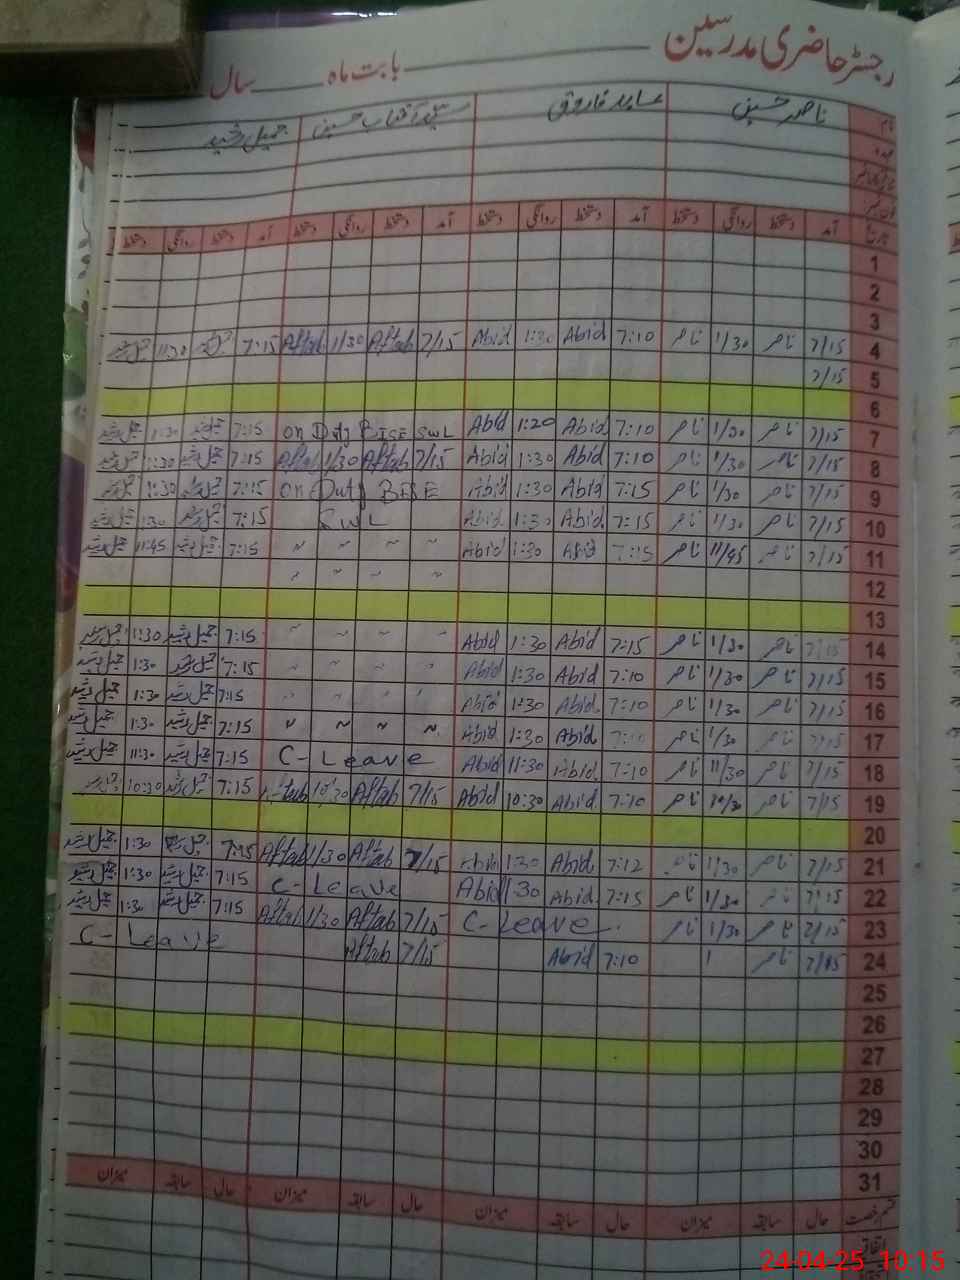 رجسٹر حاضری مدرسین بابت ماہ سال
نام ناصر حسین عابد فاروق سید آفتاب حسین جمیل رشید
عہدہ
تاریخ آمد دستخط روانگی دستخط آمد دستخط روانگی دستخط آمد دستخط روانگی دستخط آمد دستخط روانگی دستخط
1
2
3
4 7/15 ناصر 1/30 ناصر 7:10 Abid 1:30 Abid 7/15 Aftab 1/30 Aftab 7:15 جمیل رشید 11:30 جمیل رشید
5 7/15
6
7 7/15 ناصر 1/30 ناصر 7:10 Abid 1:20 Abid On Duty BISE SWL 7:15 جمیل رشید 1:30 جمیل رشید
8 7/15 ناصر 1/30 ناصر 7:10 Abid 1:30 Abid 7/15 Aftab 1/30 Aftab 7:15 جمیل رشید 1:30 جمیل رشید
9 7/15 ناصر 1/30 ناصر 7:15 Abid 1:30 Abid On Duty BISE 7:15 جمیل رشید 1:30 جمیل رشید
10 7/15 ناصر 1/30 ناصر 7:15 Abid 1:30 Abid SWL 7:15 جمیل رشید 1:30 جمیل رشید
11 7/15 ناصر 11/45 ناصر 7:15 Abid 1:30 Abid ~ ~ ~ ~ 7:15 جمیل رشید 11:45 جمیل رشید
12 ~ ~ ~ ~
13
14 7/15 ناصر 1/30 ناصر 7:15 Abid 1:30 Abid ~ ~ ~ ~ 7:15 جمیل رشید 1:30 جمیل رشید
15 7/15 ناصر 1/30 ناصر 7:10 Abid 1:30 Abid ~ ~ ~ ~ 7:15 جمیل رشید 1:30 جمیل رشید
16 7/15 ناصر 1/30 ناصر 7:10 Abid 1:30 Abid 7:15 جمیل رشید 1:30 جمیل رشید
17 7/15 ناصر 1/30 ناصر 7:10 Abid 1:30 Abid ~ ~ ~ ~ 7:15 جمیل رشید 1:30 جمیل رشید
18 7/15 ناصر 11/30 ناصر 7:10 Abid 11:30 Abid C-Leave 7:15 جمیل رشید 11:30 جمیل رشید
19 7/15 ناصر 10/30 ناصر 7:10 Abid 10:30 Abid 7/15 Aftab 10/30 Aftab 7:15 جمیل رشید 10:30 جمیل رشید
20
21 7/15 ناصر 1/30 ناصر 7:12 Abid 1:30 Abid 7/15 Aftab 1/30 Aftab 7:15 جمیل رشید 1:30 جمیل رشید
22 7/15 ناصر 1/30 ناصر 7:15 Abid 1:30 Abid C-Leave 7:15 جمیل رشید 1:30 جمیل رشید
23 7/15 ناصر 1/30 ناصر C-Leave. 7/15 Aftab 1/30 Aftab 7:15 جمیل رشید 1:30 جمیل رشید
24 7/15 ناصر 1 7:10 Abid 7/15 Aftab C-Leave
25
26
27
28
29
30
31
قسم رخصت حال سابقہ میزان حال سابقہ میزان حال سابقہ میزان حال سابقہ میزان
اتفاقیہ
24-04-25 10:15